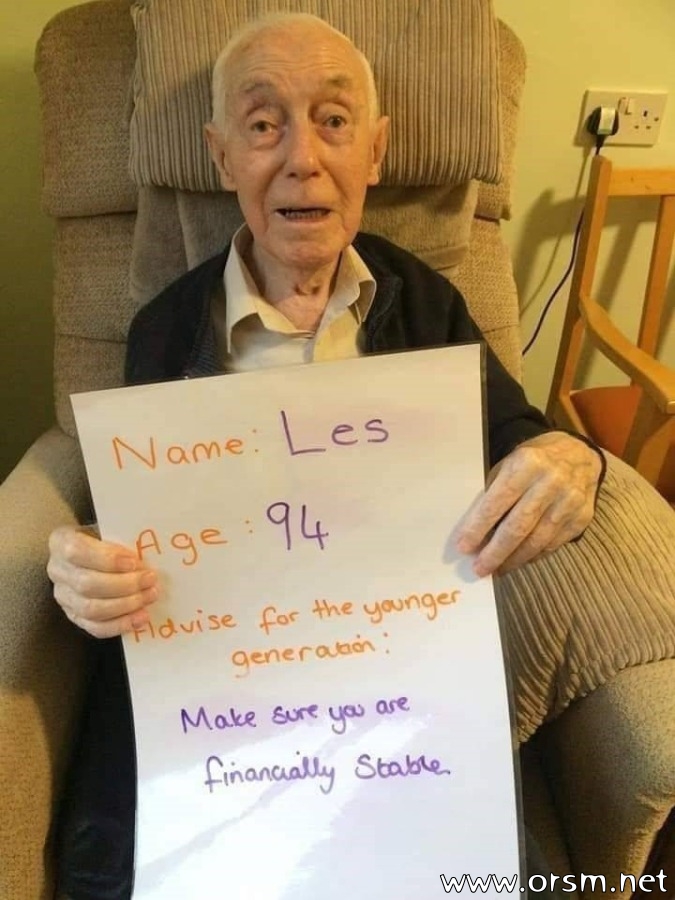 Name: Les
Age: 94
Advise for the younger
generation:
Make sure you are
financially Stable.
www.orsm.net